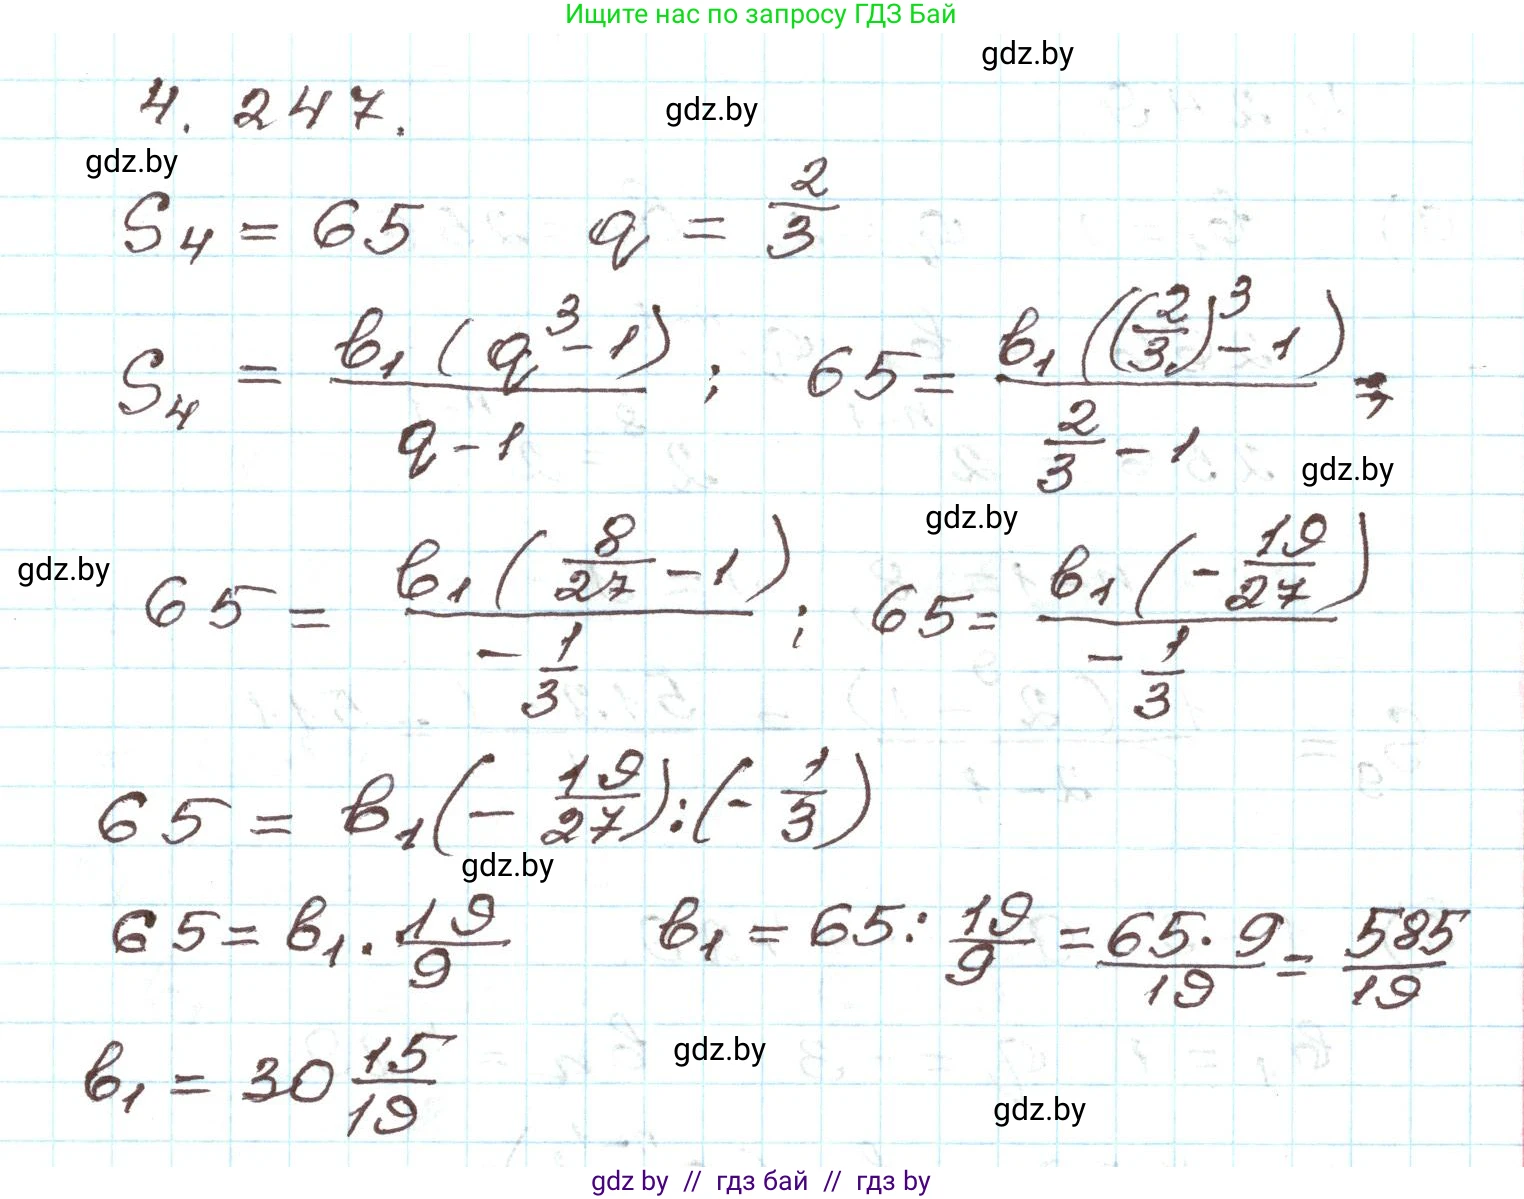 Ищите нас по запросу ГДЗ Бай
gdz.by
4. 247.
gdz.by
gdz.by
S₄ = 65 q = 2/3
S₄ = b₁(q³ - 1)/(q - 1) ; 65 = b₁((2/3)³ - 1)/(2/3 - 1) ;
gdz.by
gdz.by
gdz.by
65 = b₁(8/27 - 1)/(-1/3) ; 65 = b₁(-19/27)/(-1/3)
65 = b₁(-19/27):(-1/3)
gdz.by
65 = b₁ · 19/9 b₁ = 65 : 19/9 = 65·9/19 = 585/19
gdz.by
b₁ = 30 15/19
gdz.by
gdz by // гдз бай // гдз by